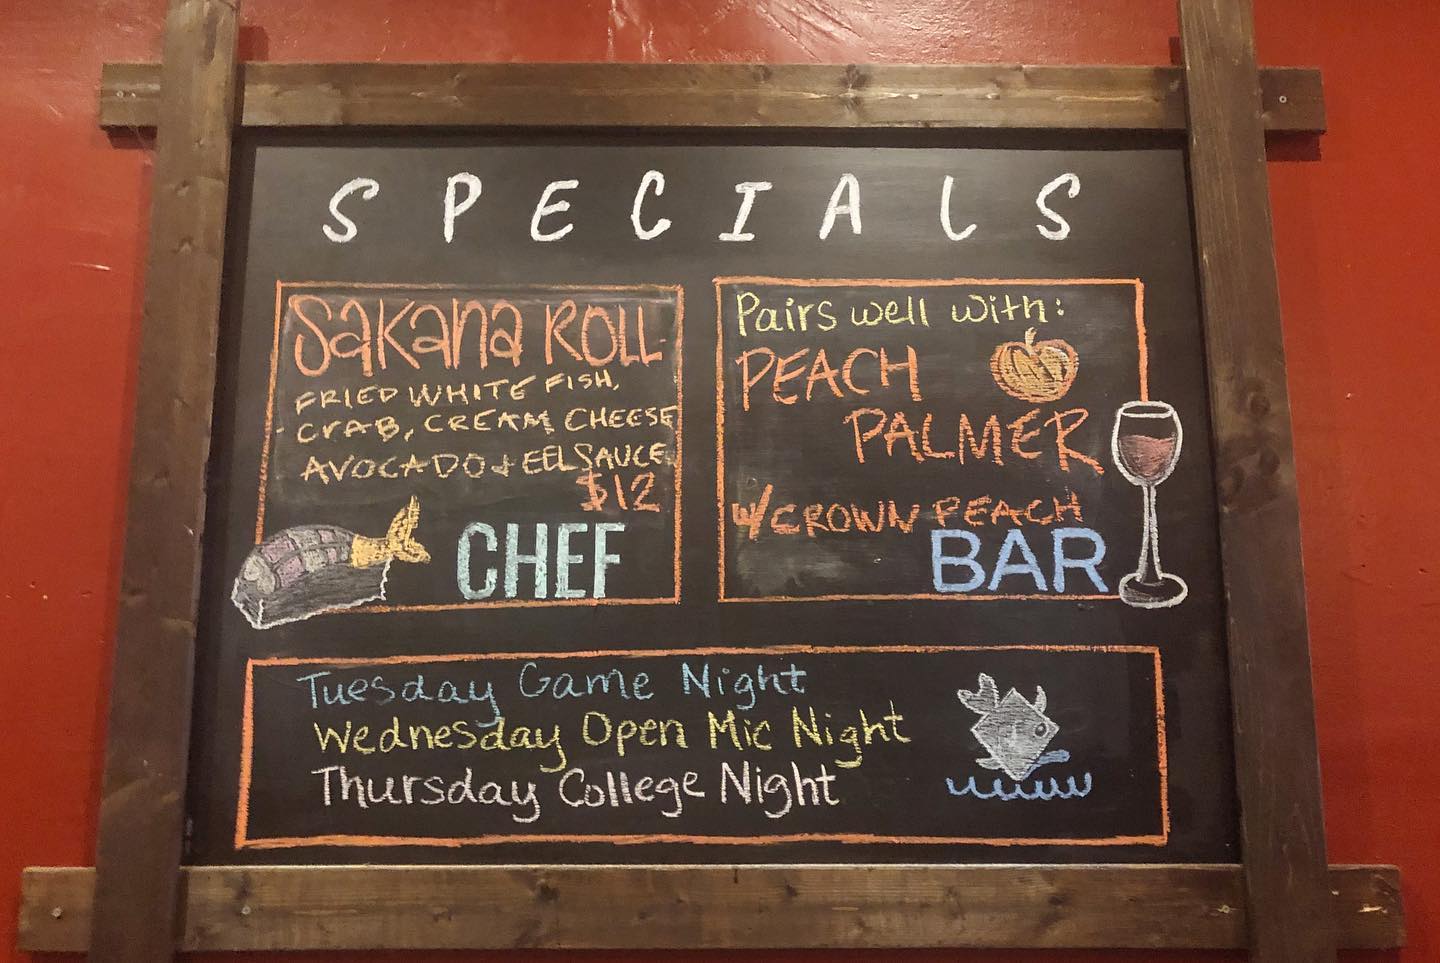 SPECIALS
SAKANA ROLL
FRIED WHITE FISH,
CRAB, CREAM CHEESE
AVOCADO + EEL SAUCE
$12
CHEF
Pairs well with:
PEACH
PALMER
w/ CROWN PEACH
BAR
Tuesday Game Night
Wednesday Open Mic Night
Thursday College Night